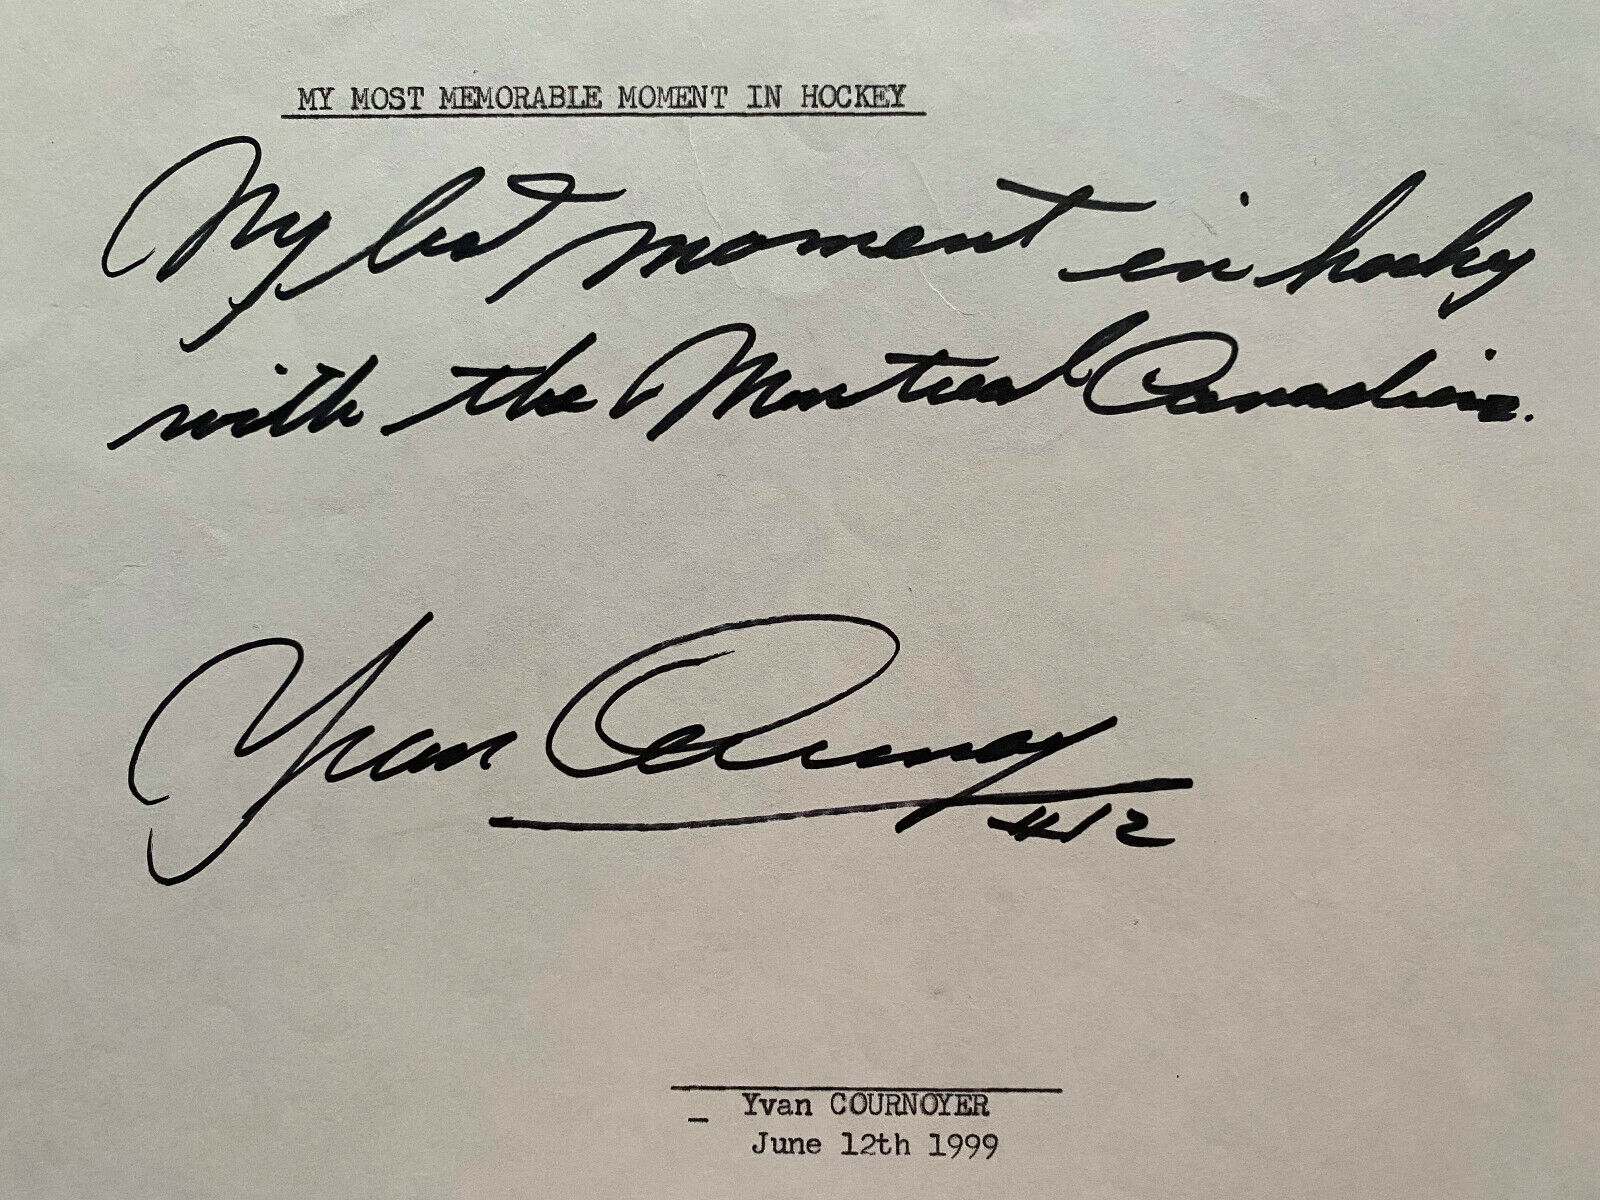 MY MOST MEMORABLE MOMENT IN HOCKEY
My best moment in hockey
with the Montreal Canadiens.
Yvan Cournoyer
#12
Yvan COURNOYER
June 12th 1999